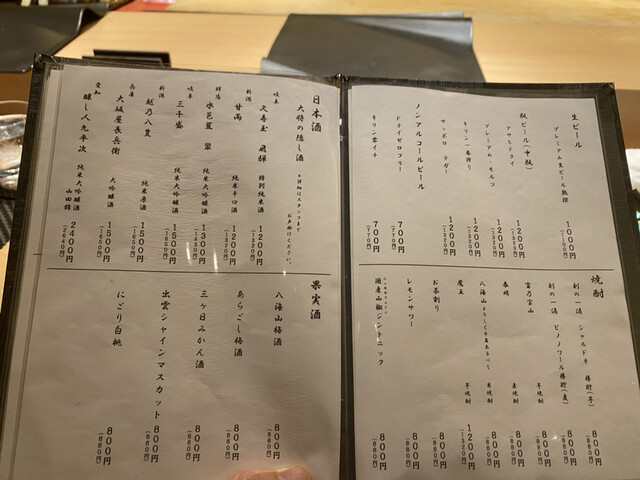 生ビール
プレミアム生ビール熟撰 1000円
(1100円)
瓶ビール(中瓶)
アサヒドライ 1200円
(1320円)
プレミアム・モルツ 1200円
(1320円)
キリン一番搾り 1200円
(1320円)
サッポロ ラガー 1200円
(1320円)
ノンアルコールビール
ドライゼロフリー 700円
(770円)
キリン零イチ 700円
(770円)
焼酎
刻の一滴 シャルドネ 樽貯(芋) 800円
(880円)
刻の一滴 ピノノワール樽貯(麦) 800円
(880円)
富乃宝山 芋焼酎 800円
(880円)
麦焼酎 800円
(880円)
八海山 米焼酎 800円
(880円)
魔王 芋焼酎 1200円
(1320円)
お茶割り 800円
(880円)
レモンサワー 800円
(880円)
国産山椒ジントニック 800円
(880円)
日本酒
大将の隠し酒
※詳細はスタッフまで
お声掛けください。
岐阜
久寿玉 飛騨 特別純米酒 1200円
(1320円)
新潟
甘雨 純米辛口酒 1200円
(1320円)
群馬
水芭蕉 翠 純米大吟醸酒 1300円
岐阜
三千盛 純米大吟醸酒 1500円
(1650円)
新潟
越乃八豊 純米原酒 1500円
(1650円)
兵庫
大坂屋長兵衛 大吟醸酒 1500円
(1650円)
愛知
醸し人九平次 純米大吟醸酒 山田錦 2400円
(2640円)
果実酒
八海山梅酒 800円
(880円)
あらごし梅酒 800円
(880円)
三ヶ日みかん酒 800円
(880円)
出雲シャインマスカット 800円
(880円)
にごり白桃 800円
(880円)